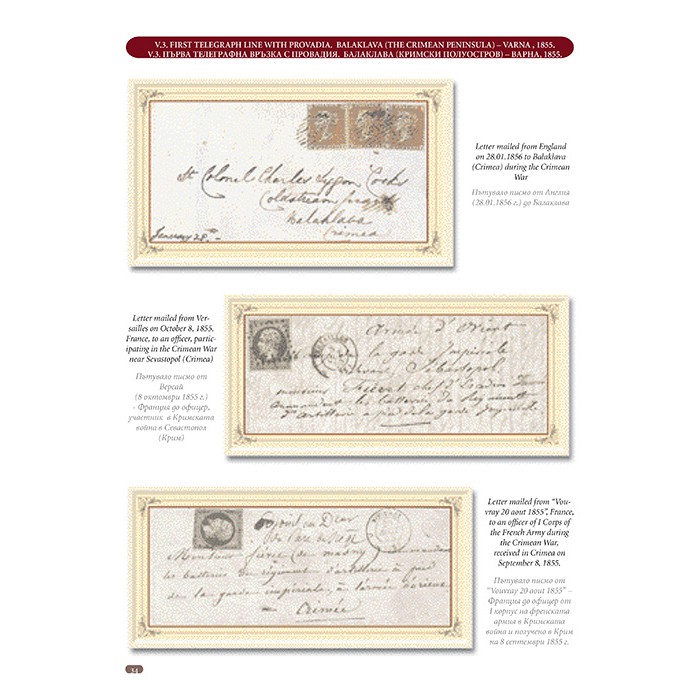 V.3. FIRST TELEGRAPH LINE WITH PROVADIA. BALAKLAVA (THE CRIMEAN PENINSULA) – VARNA , 1855.
V.3. ПЪРВА ТЕЛЕГРАФНА ВРЪЗКА С ПРОВАДИЯ. БАЛАКЛАВА (КРИМСКИ ПОЛУОСТРОВ) – ВАРНА, 1855.
Letter mailed from England
on 28.01.1856 to Balaklava
(Crimea) during the Crimean
War
Пътувало писмо от Англия
(28.01.1856 г.) до Балаклава
Lt Colonel Charles
Coldstream
Balaklava
Crimea
January 28th
Letter mailed from Ver-
sailles on October 8, 1855,
France, to an officer, partic-
ipating in the Crimean War
near Sevastopol (Crimea)
Пътувало писмо от
Версай
(8 октомври 1855 г.)
- Франция до офицер,
участник в Кримската
война в Севастопол
(Крим)
Armée d'Orient
de la garde Impériale
devant Sébastopol
monsieur
commandant les batteries du Régiment
d'artillerie à pied de la garde Impériale
Letter mailed from "Vou-
vray 20 aout 1855", France,
to an officer of I Corps of
the French Army during
the Crimean War,
received in Crimea on
September 8, 1855.
Пътувало писмо от
"Vouvray 20 aout 1855" –
Франция до офицер от
I корпус на френската
армия в Кримската
война и получено в Крим
на 8 септември 1855 г.
Monsieur
les batteries du régiment d'artillerie à pied
de la garde impériale, à l'armée d'orient
Crimée
34